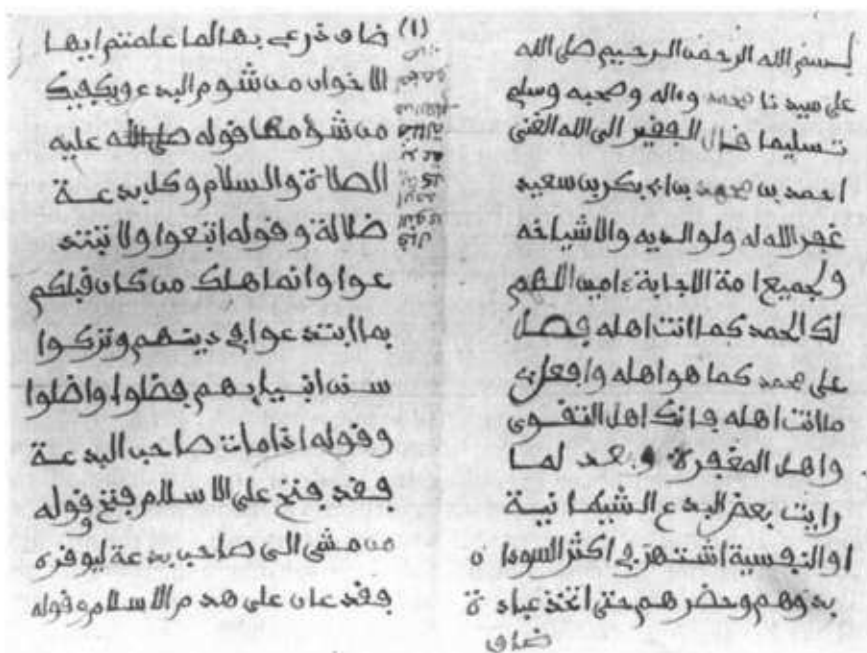 بسم الله الرحمن الرحيم صلى الله
على سيدنا محمد وءاله وصحبه وسلم
تسليما فال الفقير الى الله الغنى
احمد بن محمد بن ابى بكر بن سعيد
غفر الله له ولوالديه والاشياخه
ولجميع امة الاجابة ءامين اللهم
لك الحمد كما انت اهله فصل
على محمد كما هو اهله وافعل بى
ما انت اهله فانك اهل التقوى
واهل المغفرة وبعد لما
رايت بعض البدع الشيطانية
اوالنفسية اشتهر فى اكثر السودان
بدوهم وحضرهم حتى اتخذ عبادة
ضاق
(1)
ضاق ذرعى بها لما علمتم ايها
الاخوان من شوم البدع ويكفيك
من شؤمها قوله صلى الله عليه
الصلاة والسلام وكل بدعة
ضلالة وقوله اتبعوا ولا تبتد
عوا وانما هلك من كان قبلكم
بما ابتدعوا فى دينهم وتركوا
سنن انبيايهم فضلوا واضلوا
وقوله اذا مات صاحب البدعة
فقد فتح على الاسلام فتح وقوله
من مشى الى صاحب بدعة ليوقره
فقد عان على هدم الاسلام وقوله